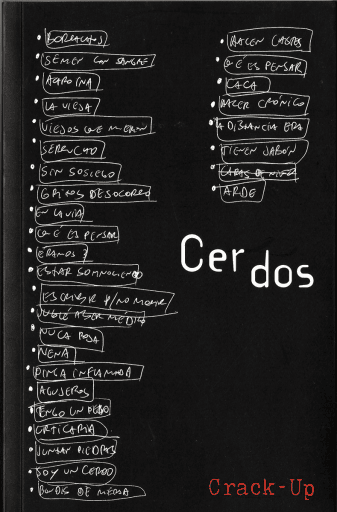 • BORRACHOS
• SEMEN CON SANGRE
• ACAROÍNA
• LA VIEJA
• VIEJOS QUE MUEREN
• SERRUCHO
• SIN SOSIEGO
• GRITOS DE SOCORRO
• EN LA VÍA
• QUÉ ES PENSAR
• ERAMOS 7
• ESTAR SOMNOLIENDO
• ESCRIBIR Y/NO MORIR
• JUGUÉ A SER MÉDICO
• NUCA ROSA
• NENA
• PINGA INFLAMADA
• AGUJEROS
• TENGO UN PEDO
• URTICARIA
• JUNTAR PIEDRAS
• SOY UN CERDO
• DE MEDIA
• HACEN CASPAS
• QUÉ ES PENSAR
• CACA
• HACER CRÓNICO
• A DISTANCIA ERA
• TIENEN JABÓN
• CARAS DE
• ARDE
Cerdos
Crack-Up